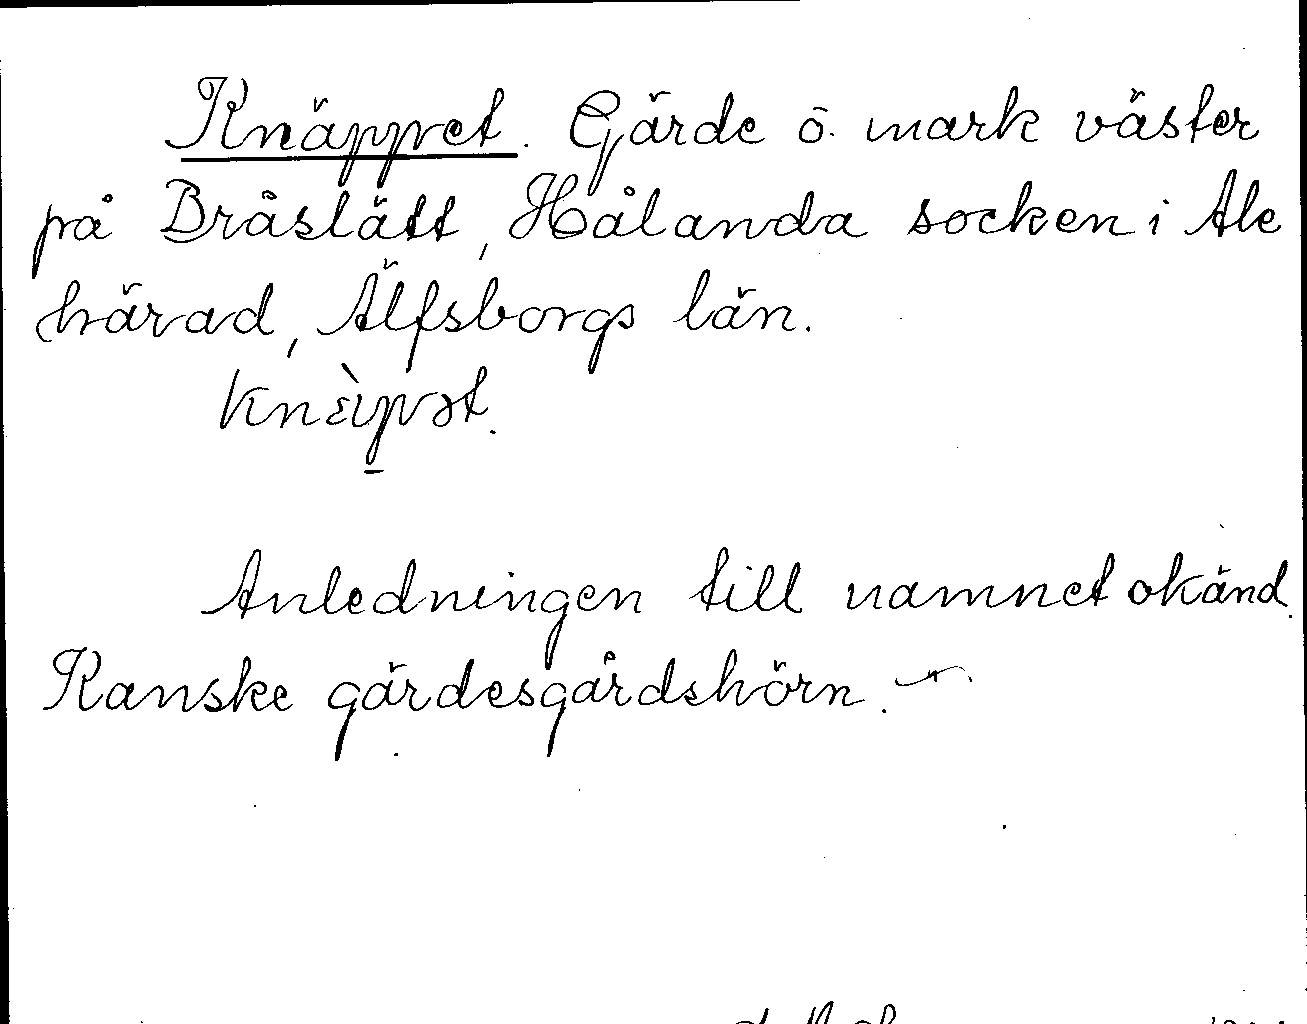 Knäppet. Gärde o. mark väster
på Bråslätt, Hålanda socken i Ale
härad, Älfsborgs län.
knɛ̀p̠ət.
Anledningen till namnet okänd.
Kanske gärdesgårdshörn.